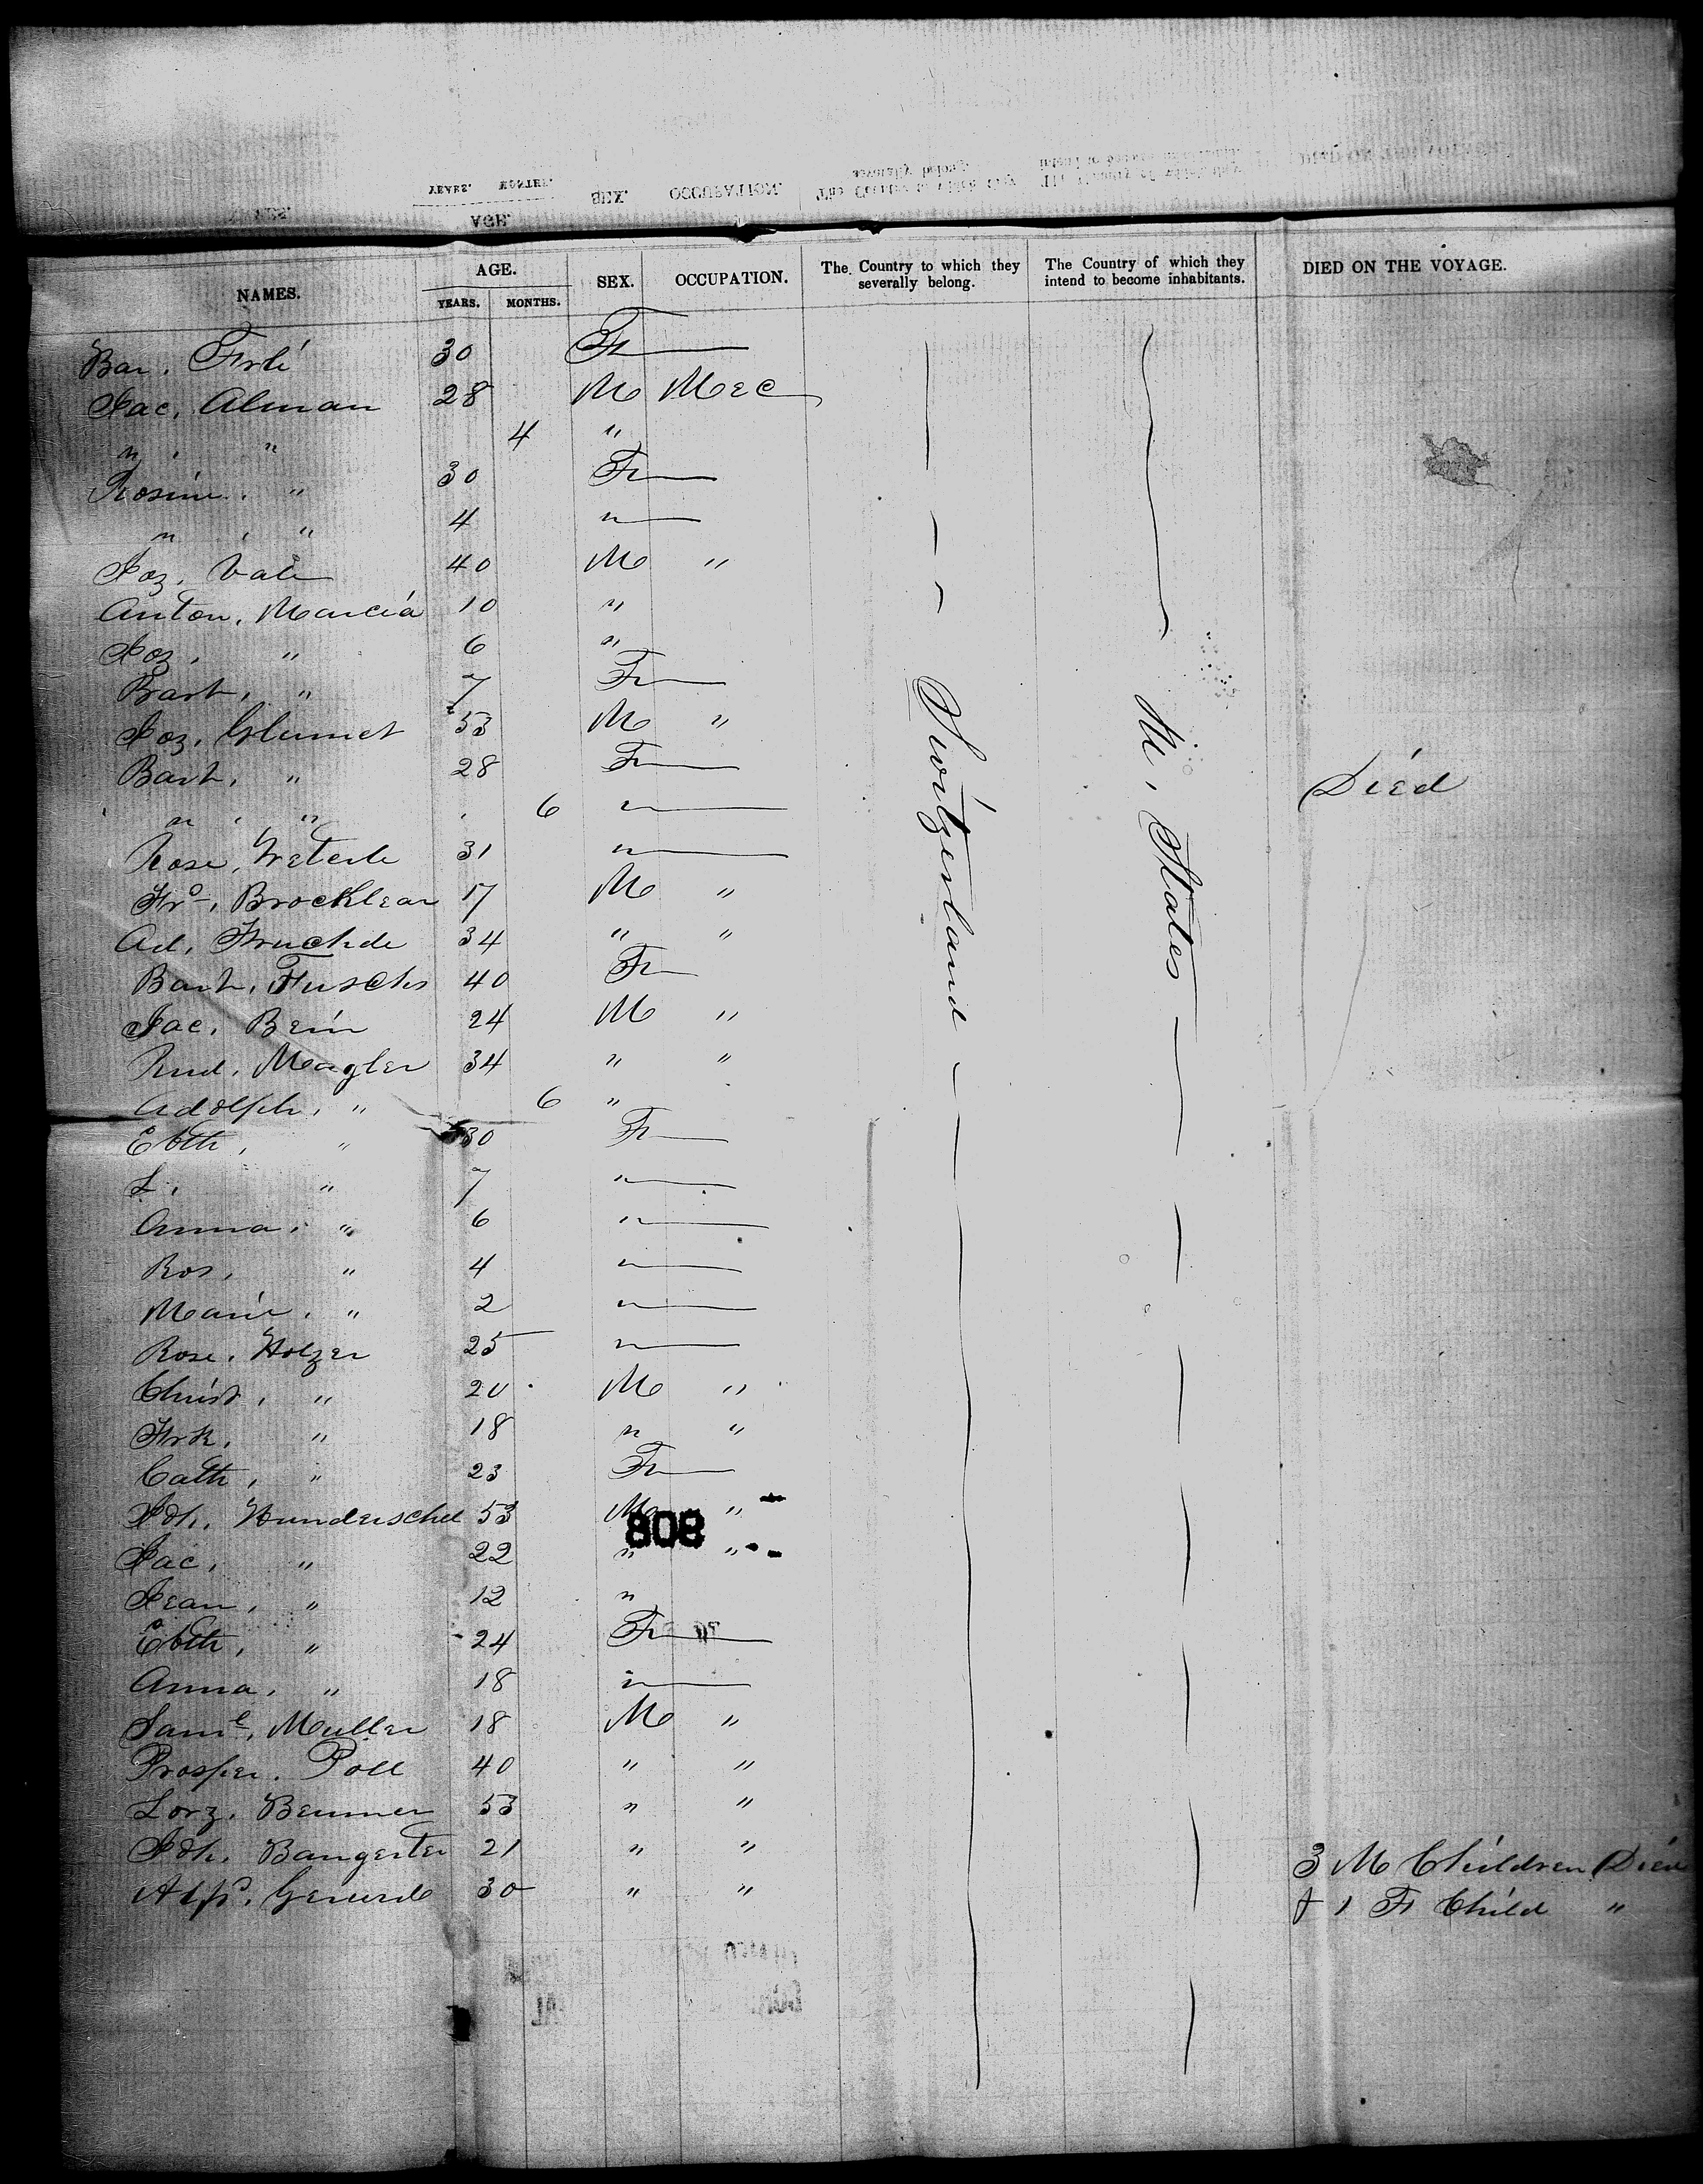 NAMES. AGE. YEARS. MONTHS. SEX. OCCUPATION. The Country to which they severally belong. The Country of which they intend to become inhabitants. DIED ON THE VOYAGE.
Bar. 30 F
Jac, Alman 28 M Mec
" , " 4 "
Rosine, " 30 F
" , " 4 "
Joz, 40 M "
Anton, Marcia 10 "
Joz, " 6 "
Barb, " 7 F
Joz, Glumet 53 M "
Barb, " 28 F
" , " 6 " Died
Rose, 31 "
Fr, Brocklear 17 M "
Ad, Fruchde 34 " "
Barb, Fuschs 40 F
Jac, Bein 24 M "
Rud, Magler 34 " "
Adolph, " 6 "
Ebth, " 30 F
L, " 7 "
Anna, " 6 "
Ros, " 4 "
Marie, " 2 "
Rose, Holzer 25 "
Christ, " 20 M "
Frk, " 18 " "
Cath, " 23 F
Joh, Hunderschel 53 M "
808
Jac, " 22 " "
Jean, " 12 "
Ebth, " 24 F
Anna, " 18 "
Saml, Muller 18 M "
Prosper, Poll 40 " "
Lorz, Bemmer 53 " "
Joh, Bangerter 21 " " 3 M Children Died
30 " " & 1 F Child "
Switzerland
U, States